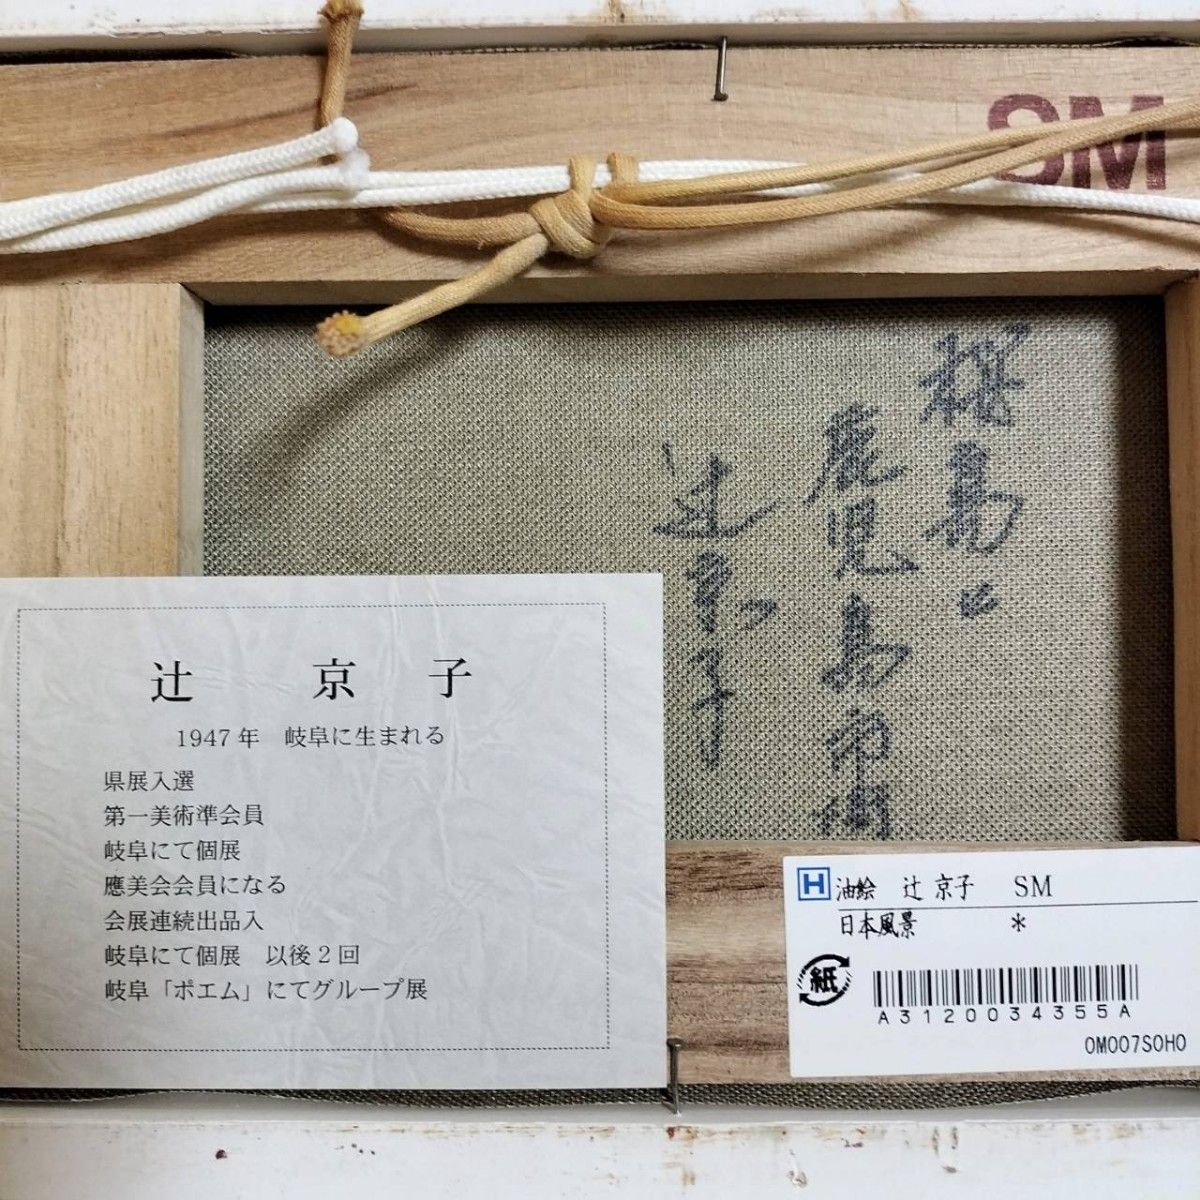 SM
桜島と
鹿児島市街
辻京子
辻 京 子
1947年 岐阜に生まれる
県展入選
第一美術準会員
岐阜にて個展
應美会会員になる
会展連続出品入
岐阜にて個展 以後2回
岐阜「ポエム」にてグループ展
H 油絵 辻 京子 SM
日本風景 *
紙
A3120034355A
0M007S0H0